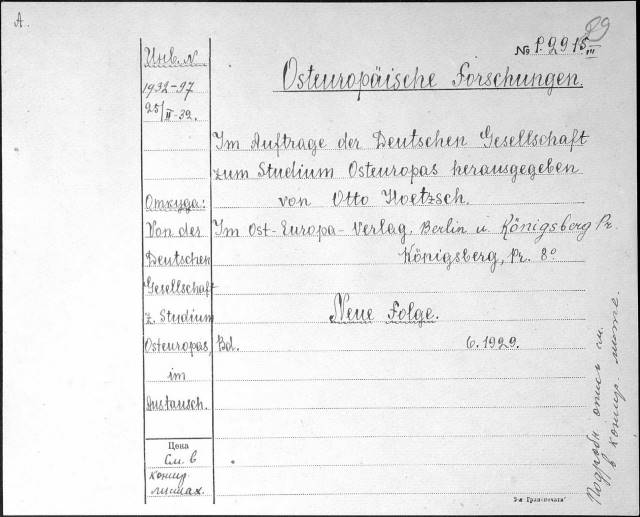 A.
29
№ P.2915/III
Osteuropäische Forschungen.
Im Auftrage der Deutschen Gesellschaft
zum Studium Osteuropas herausgegeben
von Otto Hoetzsch.
Im Ost-Europa-Verlag, Berlin u. Königsberg Pr.
Königsberg, Pr. 8°
Neue Folge.
Bd. 6.1929.
Инв. №
1932-97
25/II-32.
Откуда:
Von der
Deutschen
Gesellschaft
z. Studium
Osteuropas
im
Austausch.
Цена
См. в
конир.
листах.
Подробн опись см.
в конир. листе.